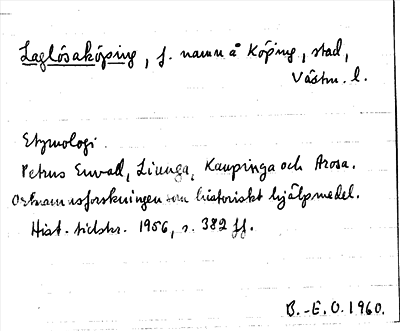 Laglösaköping, f. namn å Köping, stad,
Västm. l.
Etymologi.
Petrus Envall, Liunga, Kaupinga och Arosa.
Ortnamnsforskningen som historiskt hjälpmedel.
Hist. tidskr. 1956, s. 382 ff.
B.-E. O. 1960.